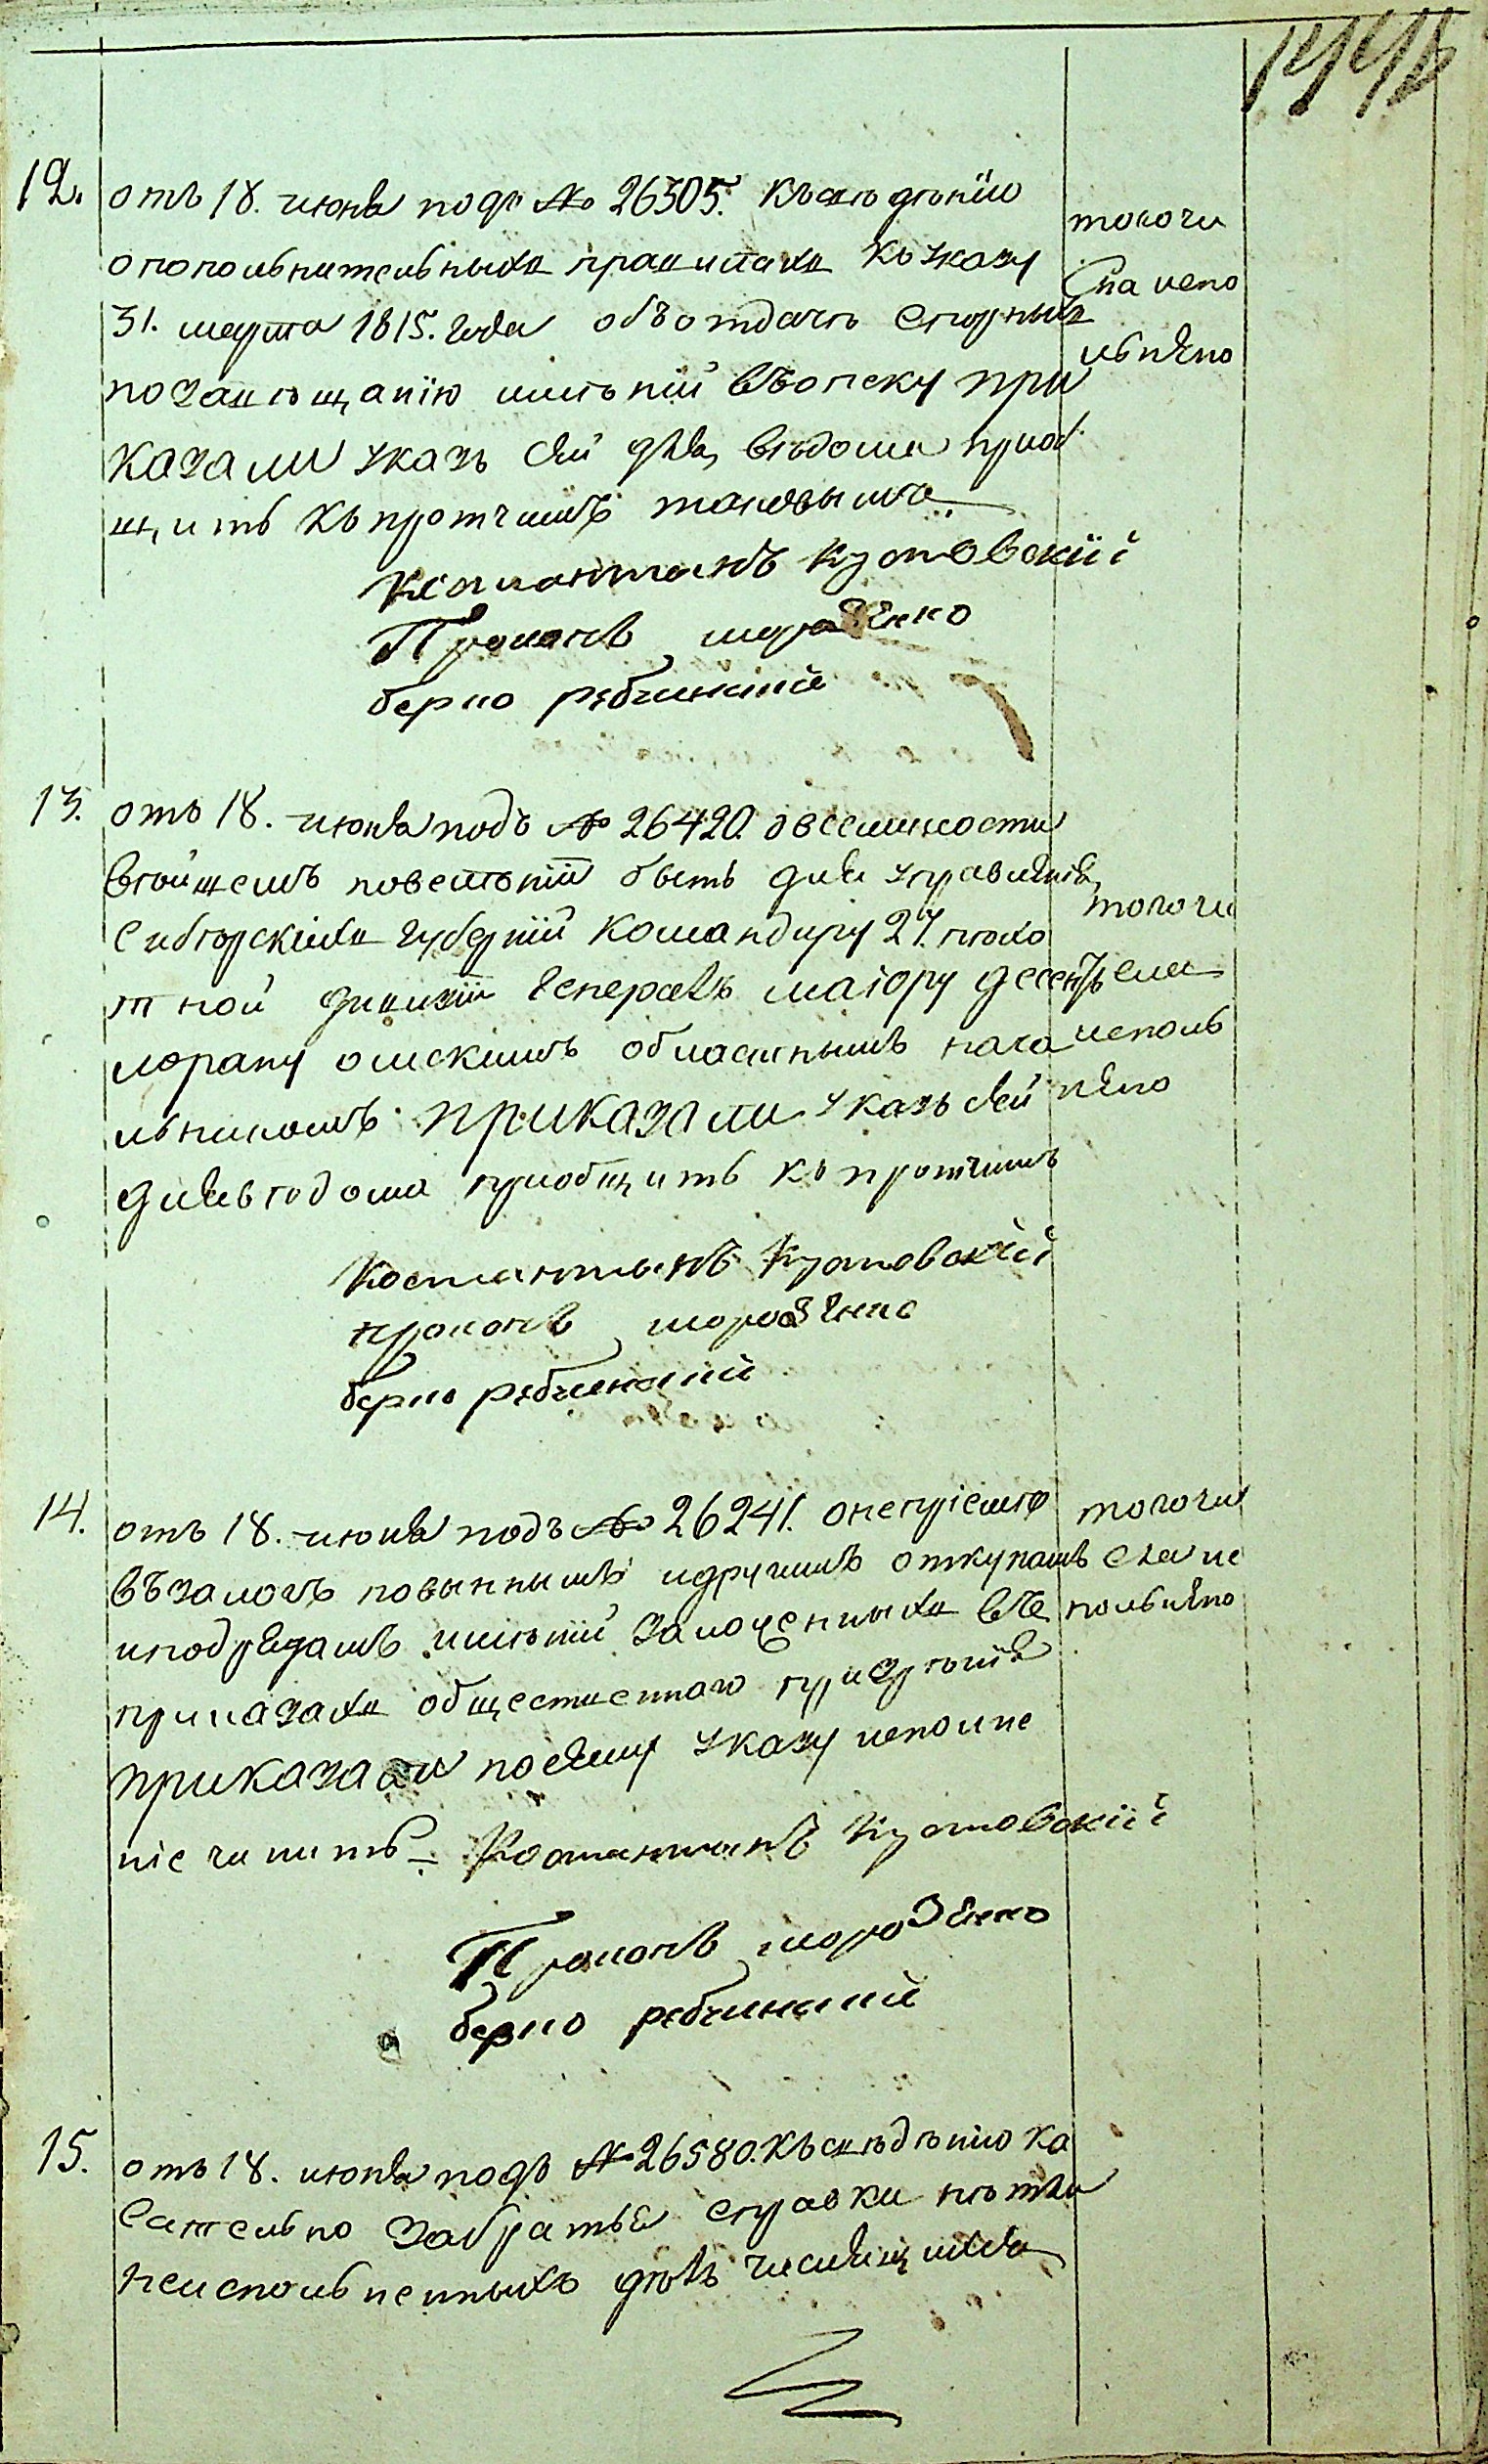 12. отъ 18. июня подъ № 26305. къ свѣдѣнїю
о пополнительныхъ правилахъ къ указу
31. марта 1815. года объ отдачѣ спорныхъ
по завѣщанїю имѣнїй въ опеку при
казали указъ сей для вѣдома приоб
щить къ протчимъ таковымъ
того чи
сла испо
лнено
Костантынъ Кутовскїй
Прокопъ морозенко
берко рябчинский
13. отъ 18. июня подъ № 26420. о всемилости
вѣйшемъ повелѣнїи быть для управленїя
Сибирскихъ губернїй командиру 27. пѣхо
тной дивизїи генералъ маіору десентъ
лорану омскимъ областнымъ нача
льникомъ приказали указъ сей
для вѣдома приобщить къ протчимъ
того чи
сла
исполь
нено
Костантынъ Кутовскїй
прокопъ морозенко
берко рябчинский
14. отъ 18. июня подъ № 26241. о непріемѣ
въ залогъ по виннымъ и другимъ откупамъ
и подрядамъ имѣнїй заложенныхъ въ
приказахъ общественнаго призрѣнїя
приказали по сему указу исполне
ніе чинить
того чи
сла ис
полнено
Костантынъ Кутовскїй
Прокопъ морозенко
берко рябчинский
15. отъ 18. июня подъ № 26580. къ свѣдѣнїю ка
сательно забратья справки нѣтли
неисполненныхъ дѣлъ числящихся